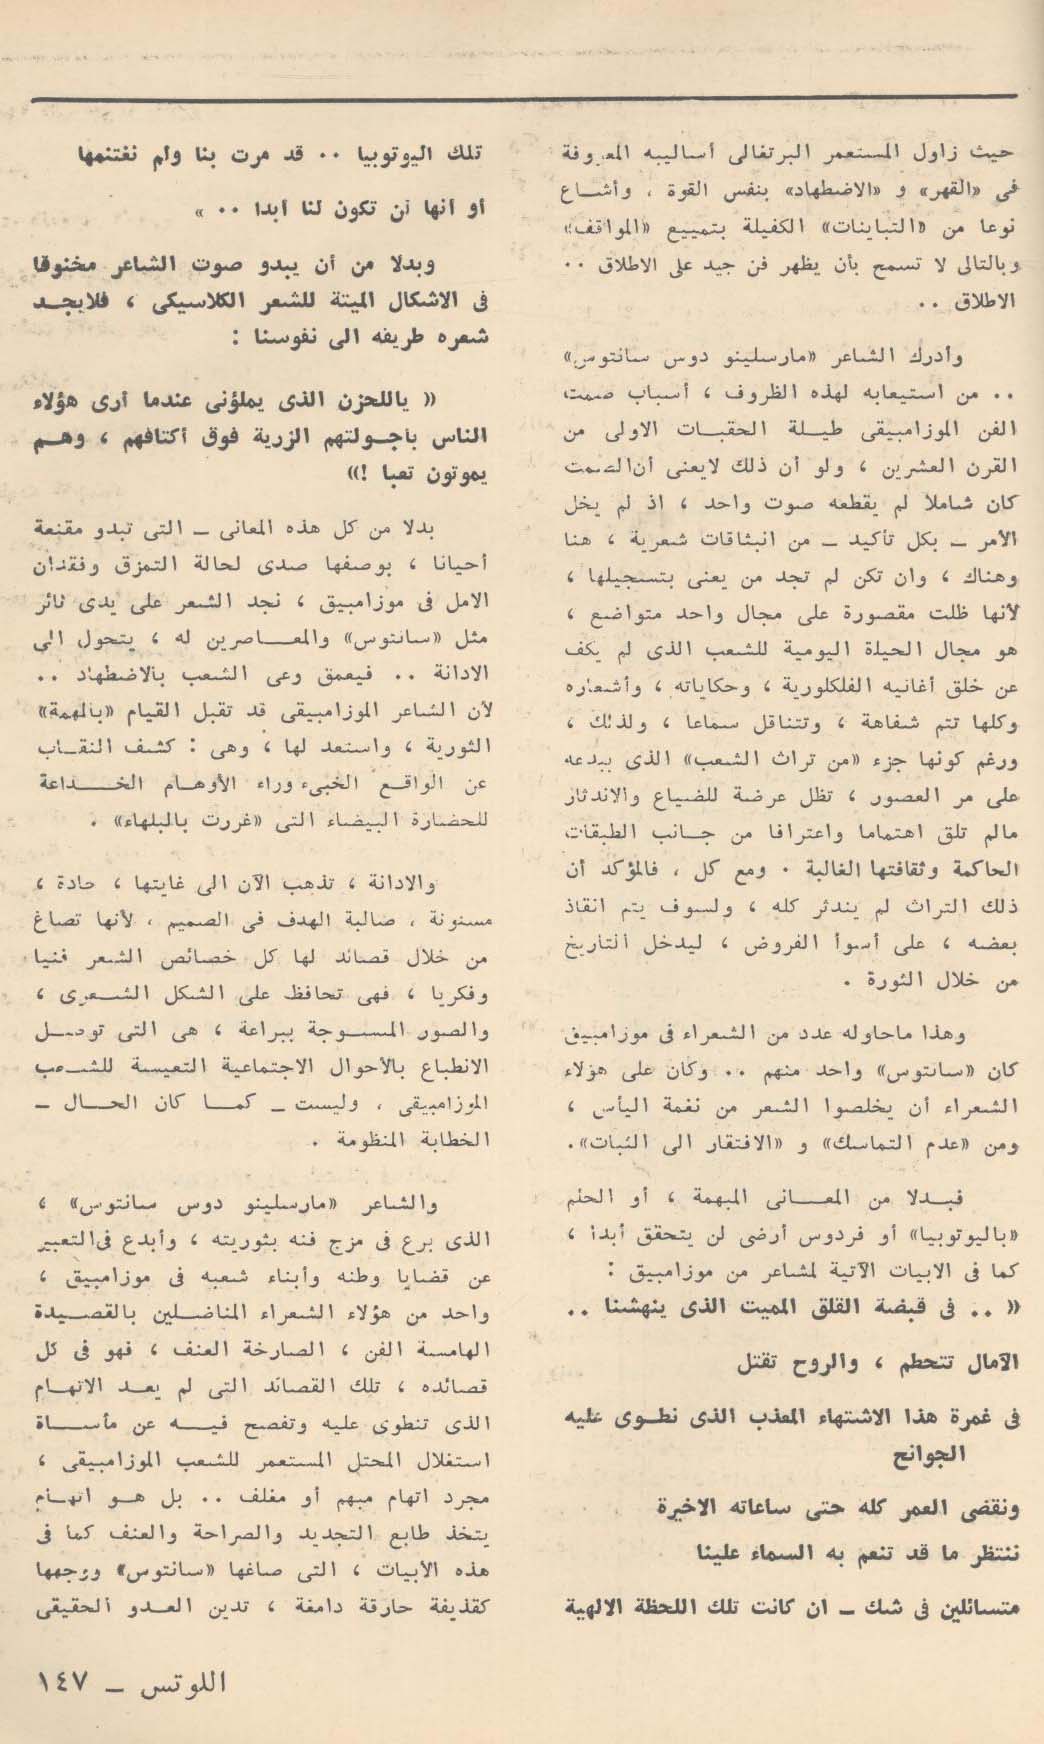 حيث زاول المستعمر البرتغالى أساليبه المعروفة
فى «القهر» و «الاضطهاد» بنفس القوة ، وأشــاع
نوعا من «التباينات» الكفيلة بتمييع «المواقف»
وبالتالى لا تسمح بأن يظهر فن جيد على الاطلاق ..
الاطلاق ..
وأدرك الشاعر «مارسلينو دوس سانتوس»
.. من استيعابه لهذه الظروف ، أسباب صمت
الفن الموزامبيقى طيــلة الحقبــات الاولى من
القرن العشرين ، ولو أن ذلك لايعنى أن الصمت
كان شاملا لم يقطعه صوت واحد ، اذ لم يخل
الأمر ــ بكل تأكيد ــ من انبثاقات شعرية ، هنا
وهناك ، وان تكن لم تجد من يعنى بتسجيلها ،
لأنها ظلت مقصورة على مجال واحد متواضع ،
هو مجال الحياة اليومية للشعب الذى لم يكف
عن خلق أغانيه الفلكلورية ، وحكاياته ، وأشعاره
وكلها تتم شفاهة ، وتتناقل سماعا ، ولذلك ،
ورغم كونها جزء «من تراث الشعب» الذى يبدعه
على مر العصور ، تظل عرضة للضياع والاندثار
مالم تلق اهتماما واعترافا من جــانب الطبقات
الحاكمة وثقافتها الغالبة . ومع كل ، فالمؤكد أن
ذلك التراث لم يندثر كله ، ولسوف يتم انقاذ
بعضه ، على أسوأ الفروض ، ليدخل التاريخ
من خلال الثورة .
وهذا ماحاوله عدد من الشعراء فى موزامبيق
كان «سانتوس» واحد منهم .. وكان على هؤلاء
الشعراء أن يخلصوا الشعر من نغمة اليأس ،
ومن «عدم التماسك» و «الافتقار الى الثبات».
فبــدلا من المعــانى المبهمة ، أو الحلم
«باليوتوبيا» أو فردوس أرضى لن يتحقق أبدا ،
كما فى الابيات الآتية لشاعر من موزامبيق :
« .. فى قبضة القلق المميت الذى ينهشنا ..
الآمال تتحطم ، والروح تقتل
فى غمرة هذا الاشتهاء المعذب الذى نطــوى عليه
الجوانح
ونقضى العمر كله حتى ساعاته الاخيرة
ننتظر ما قد تنعم به السماء علينا
متسائلين فى شك ــ ان كانت تلك اللحظة الالهية
تلك اليوتوبيا .. قد مرت بنا ولم نغتنمها
أو أنها لن تكون لنا أبدا .. »
وبدلا من أن يبدو صوت الشاعر مخنوقا
فى الاشكال الميتة للشعر الكلاسيكى ، فلايجــد
شعره طريقه الى نفوسنا :
« ياللحزن الذى يملؤنى عندما أرى هؤلاء
الناس بأجــولتهم الزرية فوق أكتافهم ، وهــم
يموتون تعبا !»
بدلا من كل هذه المعانى ــ التى تبدو مقنعة
أحيانا ، بوصفها صدى لحالة التمزق وفقدان
الامل فى موزامبيق ، نجد الشعر على يدى ثائر
مثل «سانتوس» والمعــاصرين له ، يتحول الى
الادانة .. فيعمق وعى الشعب بالاضطهاد ..
لأن الشاعر الموزامبيقى قد تقبل القيام «بالمهمة»
الثورية ، واستعد لها ، وهى : كشف النقــاب
عن الواقــع الخبىء وراء الأوهــام الخــداعة
للحضارة البيضاء التى «غررت بالبلهاء» .
والادانة ، تذهب الآن الى غايتها ، حادة ،
مسنونة ، صالبة الهدف فى الصميم ، لأنها تصاغ
من خلال قصائد لها كل خصائص الشعر فنيا
وفكريا ، فهى تحافظ على الشكل الشــعرى ،
والصور المنســوجة ببراعة ، هى التى توصــل
الانطباع بالأحوال الاجتماعية التعيسة للشــعب
الموزامبيقى ، وليست ــ كمــا كان الحــال ــ
الخطابة المنظومة .
والشاعر «مارسلينو دوس سانتوس» ،
الذى برع فى مزج فنه بثوريته ، وأبدع فى التعبير
عن قضايا وطنه وأبناء شعبه فى موزامبيق ،
واحد من هؤلاء الشعراء المناضــلين بالقصــيدة
الهامسة الفن ، الصارخة العنف ، فهو فى كل
قصائده ، تلك القصائد التى لم يعــد الاتهــام
الذى تنطوى عليه وتفصح فيــه عن مأســاة
استغلال المحتل المستعمر للشعب الموزامبيقى ،
مجرد اتهام مبهم أو مغلف .. بل هــو اتهــام
يتخذ طابع التجديد والصراحة والعنف كما فى
هذه الأبيات ، التى صاغها «سانتوس» ووجهها
كقذيفة حارقة دامغة ، تدين العــدو الحقيقى
اللوتس ــ ١٤٧